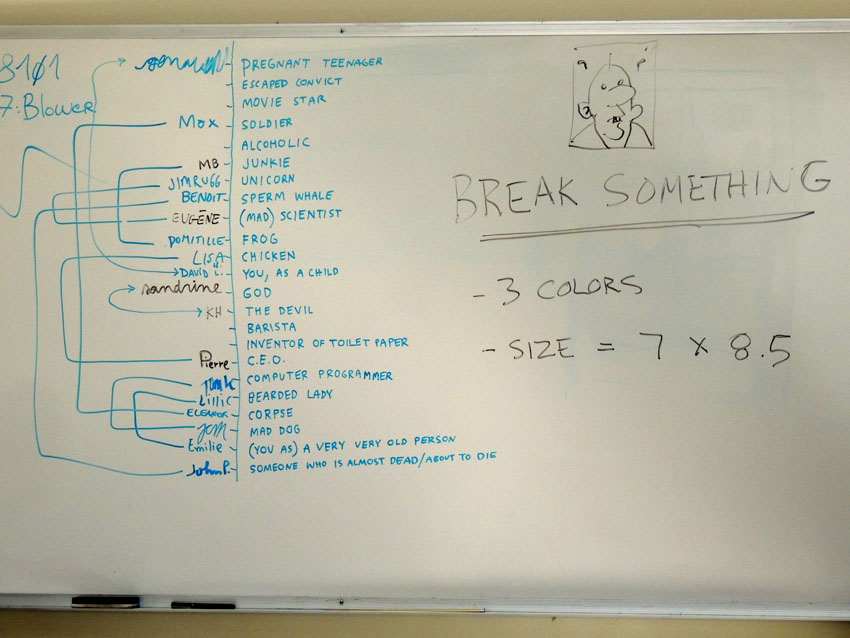 8101
7:Blower
PREGNANT TEENAGER
ESCAPED CONVICT
MOVIE STAR
Max SOLDIER
ALCOHOLIC
MB JUNKIE
JIM RUGG UNICORN
BENOIT SPERM WHALE
EUGĒNE (MAD) SCIENTIST
DOMITILLE FROG
LISA CHICKEN
DAVID L. YOU, AS A CHILD
sandrine GOD
KH THE DEVIL
BARISTA
INVENTOR OF TOILET PAPER
Pierre C.E.O.
COMPUTER PROGRAMMER
Lillie BEARDED LADY
ELEANOR CORPSE
Jom MAD DOG
Emilie (YOU AS) A VERY VERY OLD PERSON
John P. SOMEONE WHO IS ALMOST DEAD/ABOUT TO DIE
9 P
BREAK SOMETHING
- 3 COLORS
- SIZE = 7 x 8.5